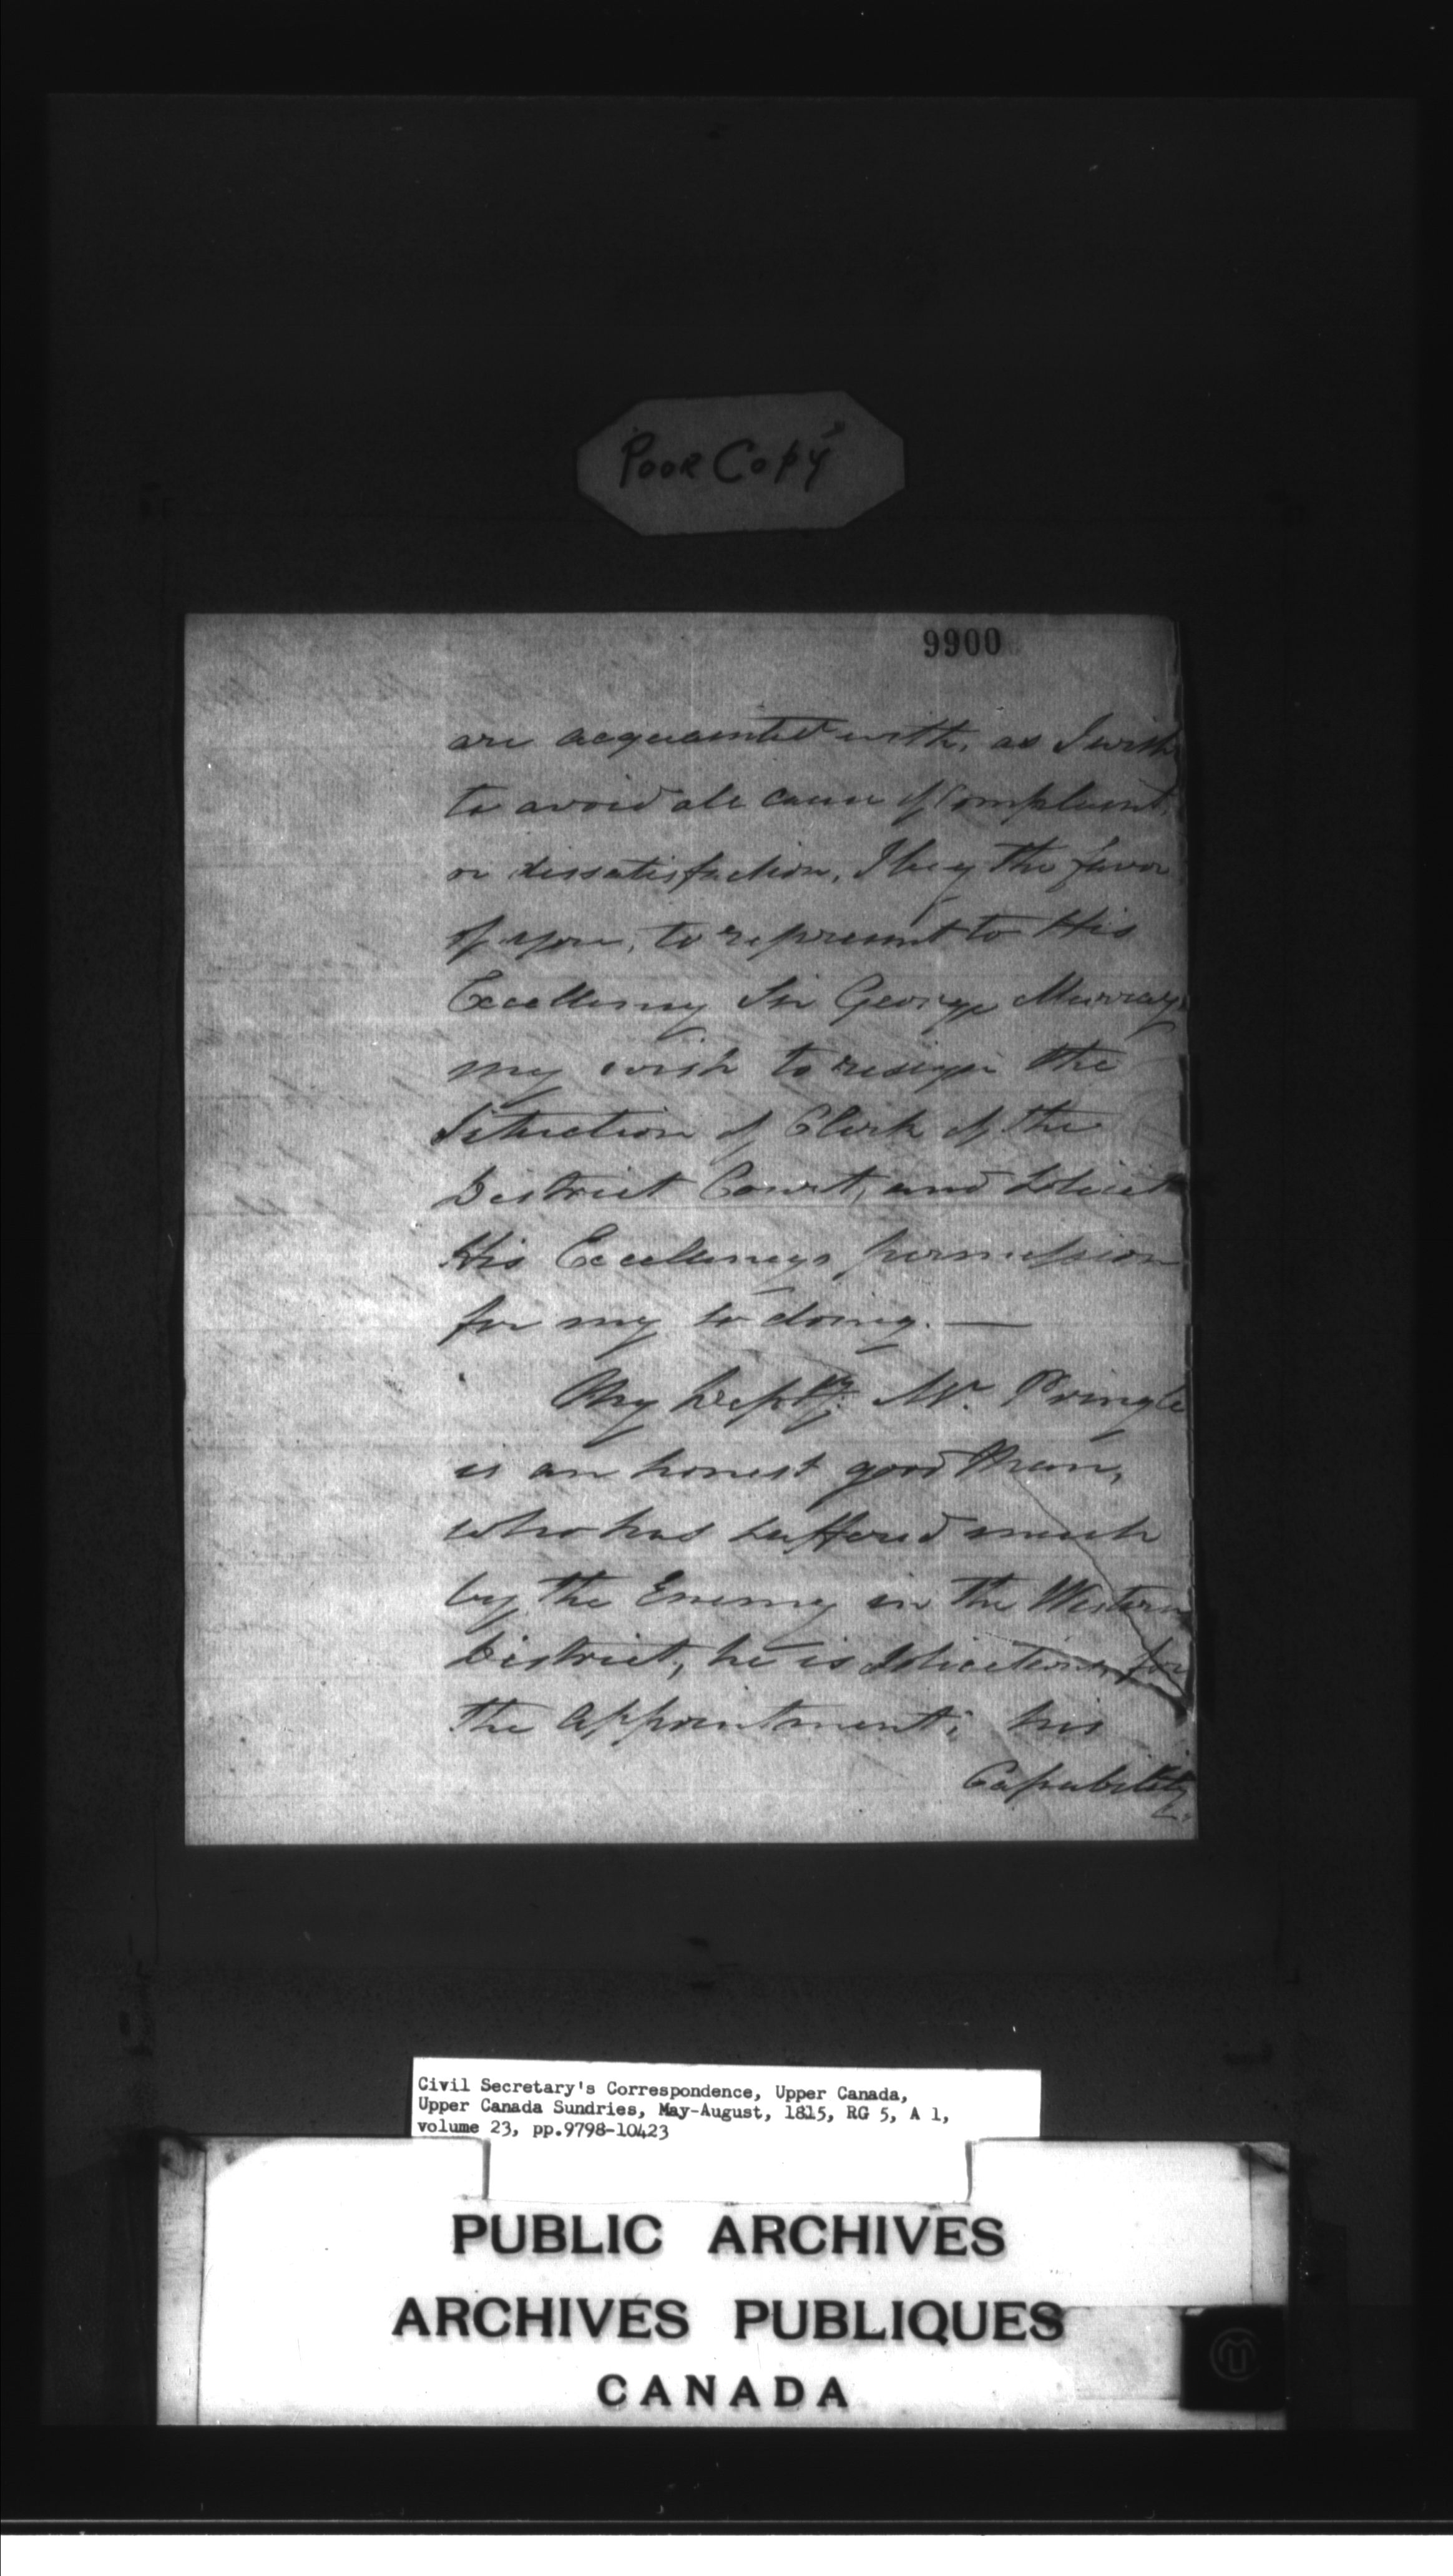 Poor Copy
9900
are acquainted with, as I wish
to avoid all cause of Complaint,
or dissatisfaction, I beg the favor
of you, to represent to His
Excellency Sir George Murray,
my wish to resign the
Situation of Clerk of the
District Court, and Solicit
His Excellencys permission
for my so doing. —
My Depty: Mr. Pringle
is an honest good Man,
who has suffered much
by the Enemy in the Western
District, he is Solicitous for
the Appointment; his
Capability
Civil Secretary's Correspondence, Upper Canada,
Upper Canada Sundries, May-August, 1815, RG 5, A 1,
volume 23, pp.9798-10423
PUBLIC ARCHIVES
ARCHIVES PUBLIQUES
CANADA